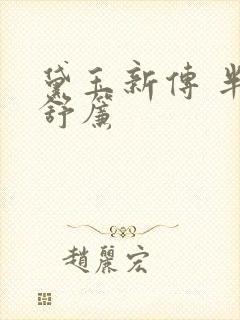 黛玉新傳 半
舒簾
趙麗宏